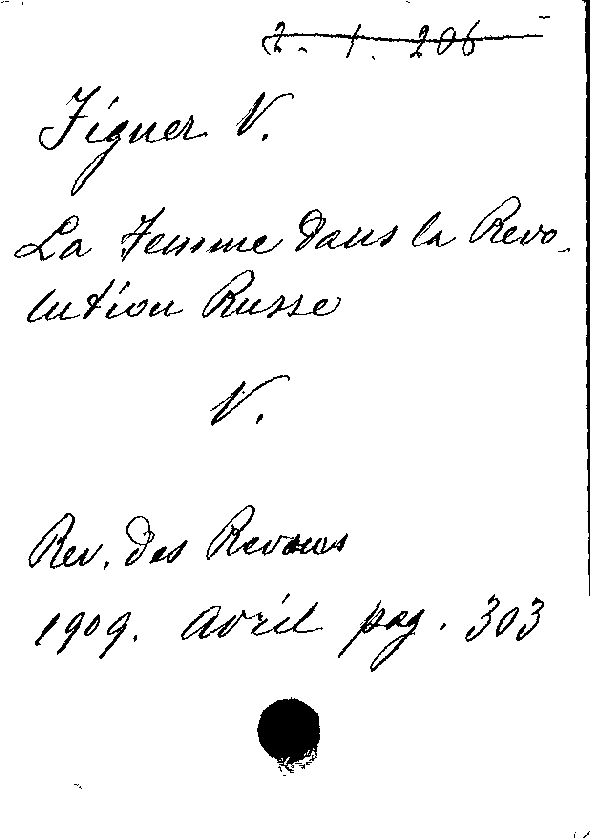 2. 1. 206
Figner V.
La Femme dans la Revo-
lution Russe
V.
Rev. des Revues
1909. Avril pag. 303